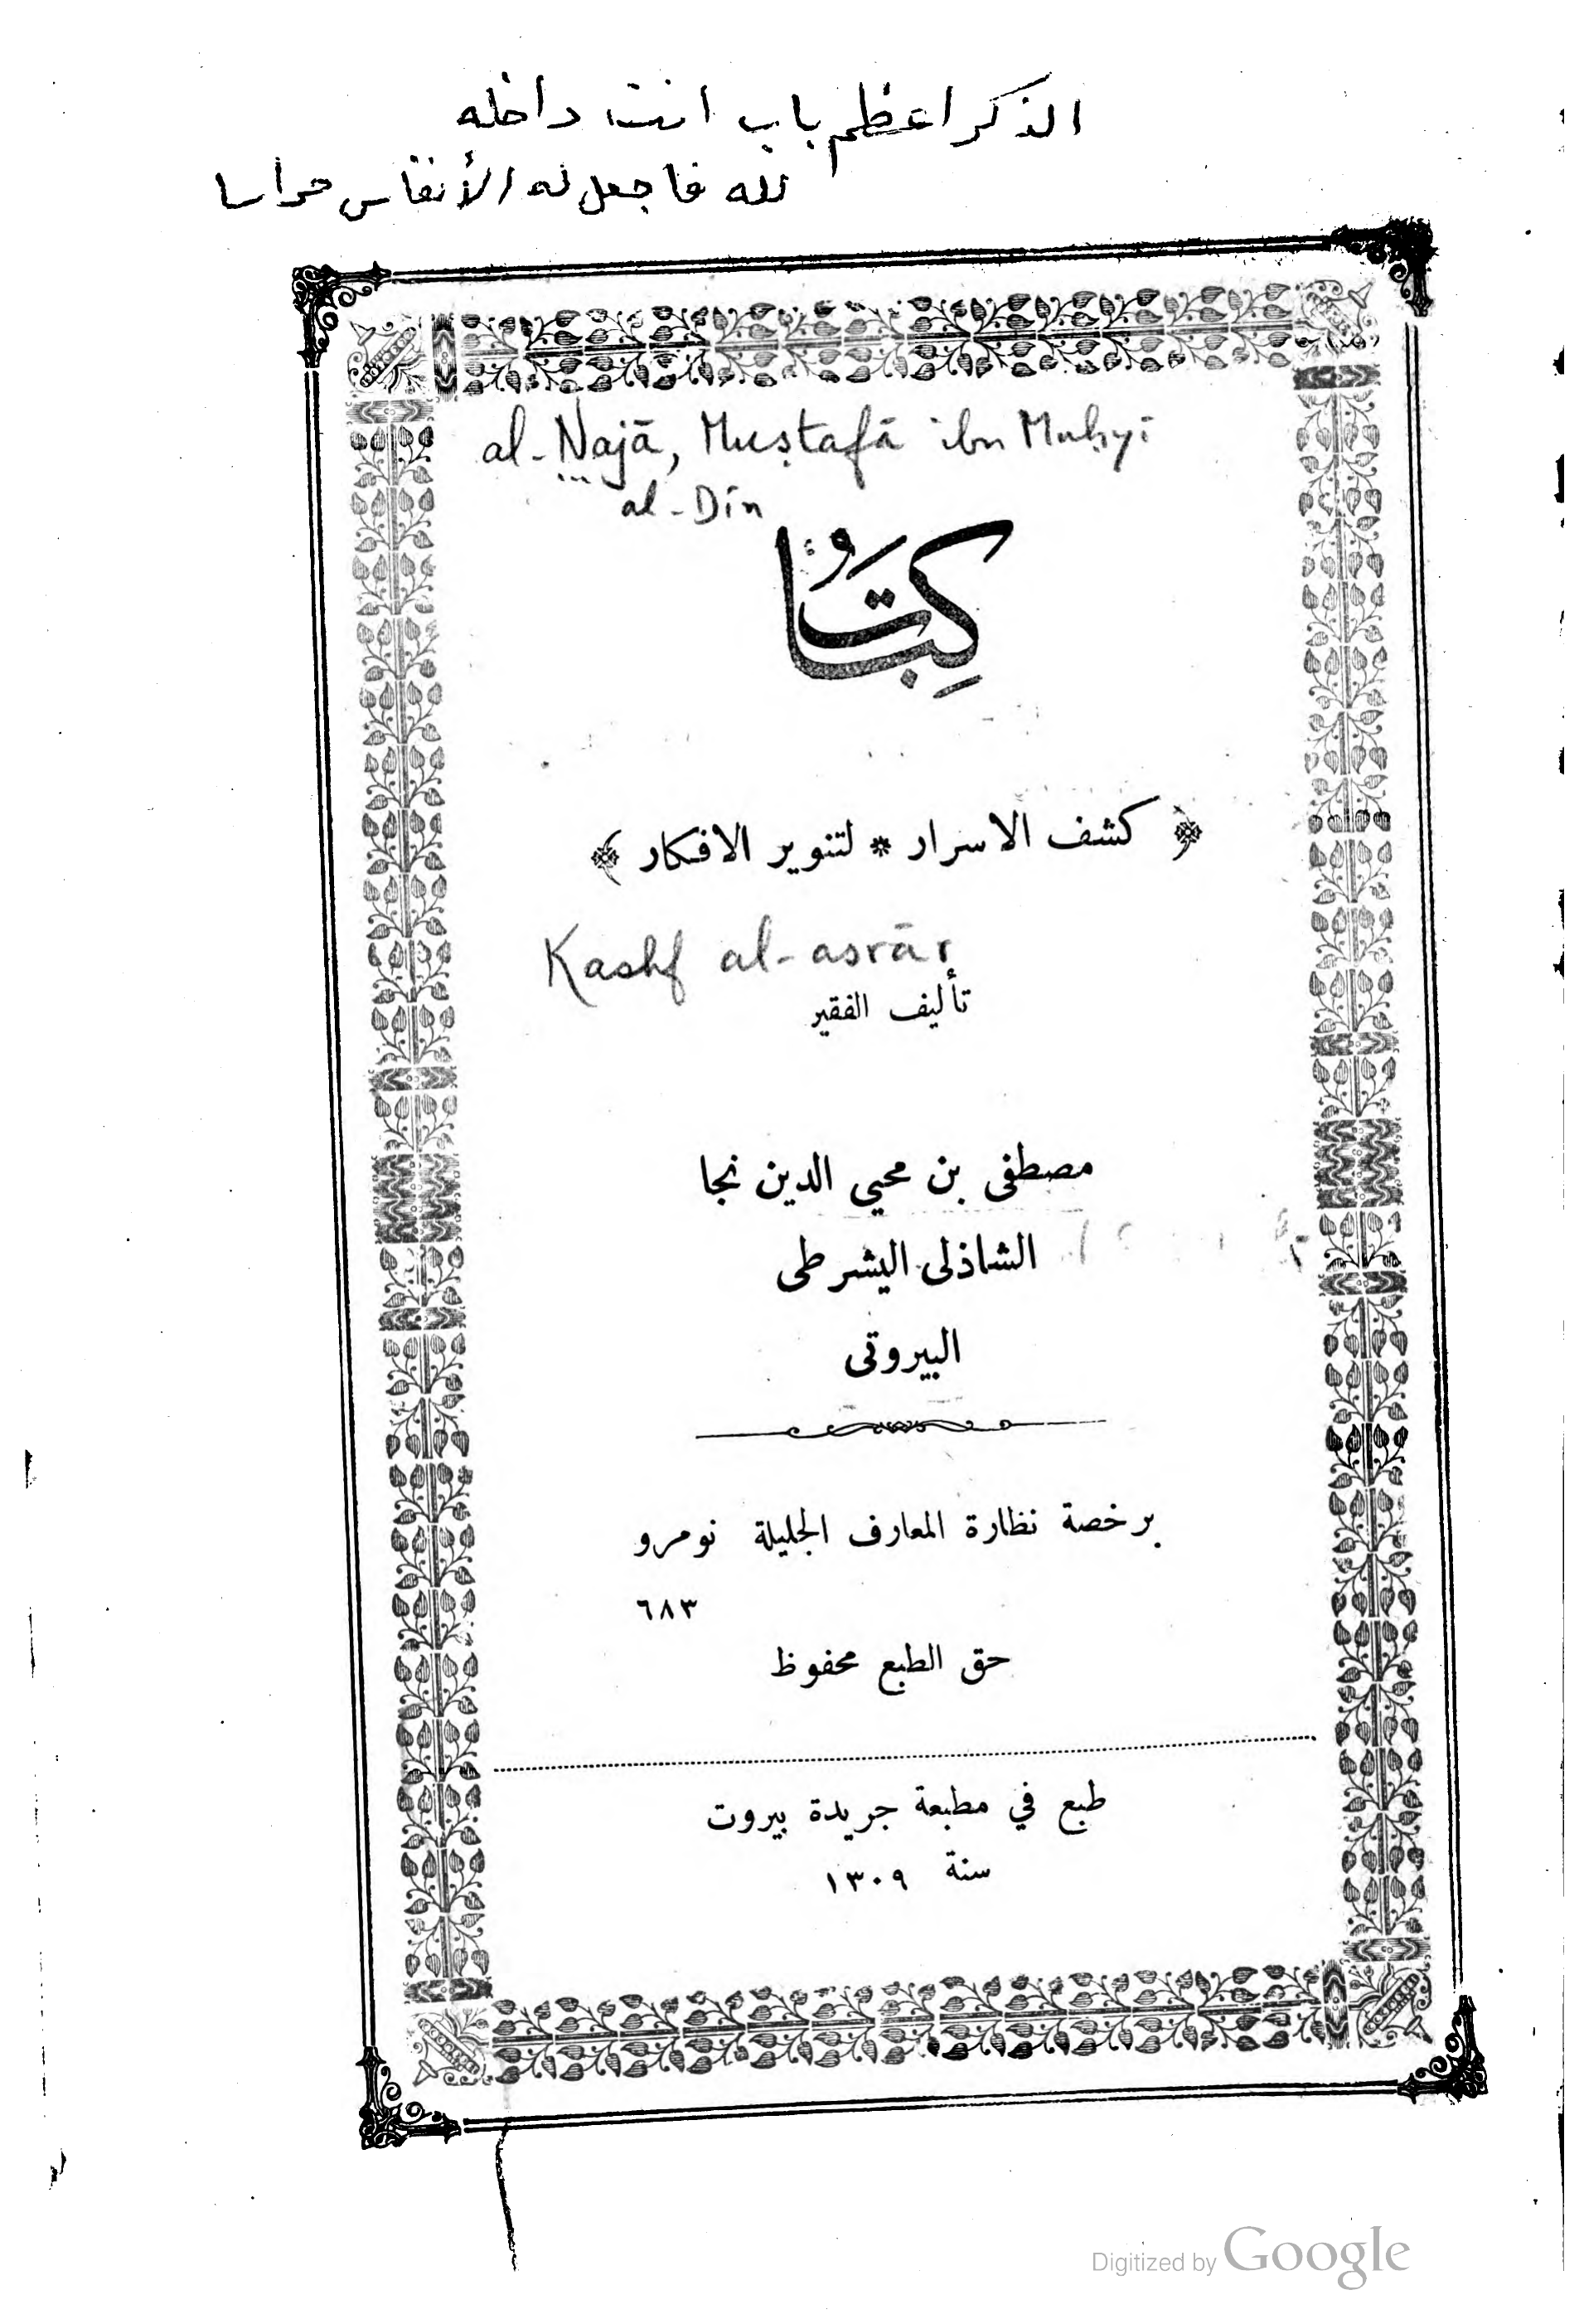 الذكر اعظم باب انت داخله
لله فاجعل له الأنفاس حراسا
al-Najā, Muṣtafā ibn Muḥyī
al-Dīn
كِتَابُ
﴿ كشف الاسرار * لتنوير الافكار ﴾
Kashf al-asrār
تأليف الفقير
مصطفى بن محيي الدين نجا
الشاذلى اليشرطى
البيروتى
برخصة نظارة المعارف الجليلة نومرو
٦٨٣
حق الطبع محفوظ
طبع في مطبعة جريدة بيروت
سنة ١٣٠٩
Digitized by Google